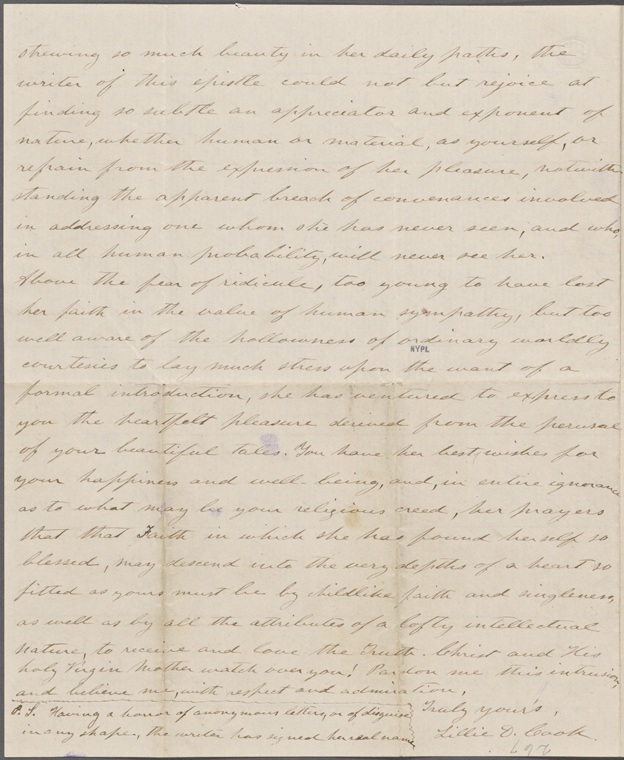 strewing so much beauty in her daily paths, the
writer of this epistle could not but rejoice at
finding so subtle an appreciator and exponent of
nature, whether human or material, as yourself, or
refrain from the expression of her pleasure, notwith-
standing the apparent breach of convenances involved
in addressing one whom she has never seen, and who,
in all human probability, will never see her.
Above the fear of ridicule, too young to have lost
her faith in the value of human sympathy, but too
well aware of the hollowness of ordinary worldly
NYPL
courtesies to lay much stress upon the want of a
formal introduction, she has ventured to express to
you the heartfelt pleasure derived from the perusal
of your beautiful tales. You have her best wishes for
your happiness and well being, and, in entire ignorance
as to what may be your religious creed, her prayers
that that Faith in which she has found herself so
blessed, may descend into the very depths of a heart so
fitted as yours must be by childlike faith and singleness,
as well as by all the attributes of a lofty intellectual
nature, to receive and love the Truth. Christ and His
holy Virgin Mother watch over you! Pardon me this intrusion,
and believe me, with respect and admiration,
Truly your's,
Lillie D. Cook.
P. S. Having a horror of anonymous letters, or of disguise
in any shape, the writer has signed her real name